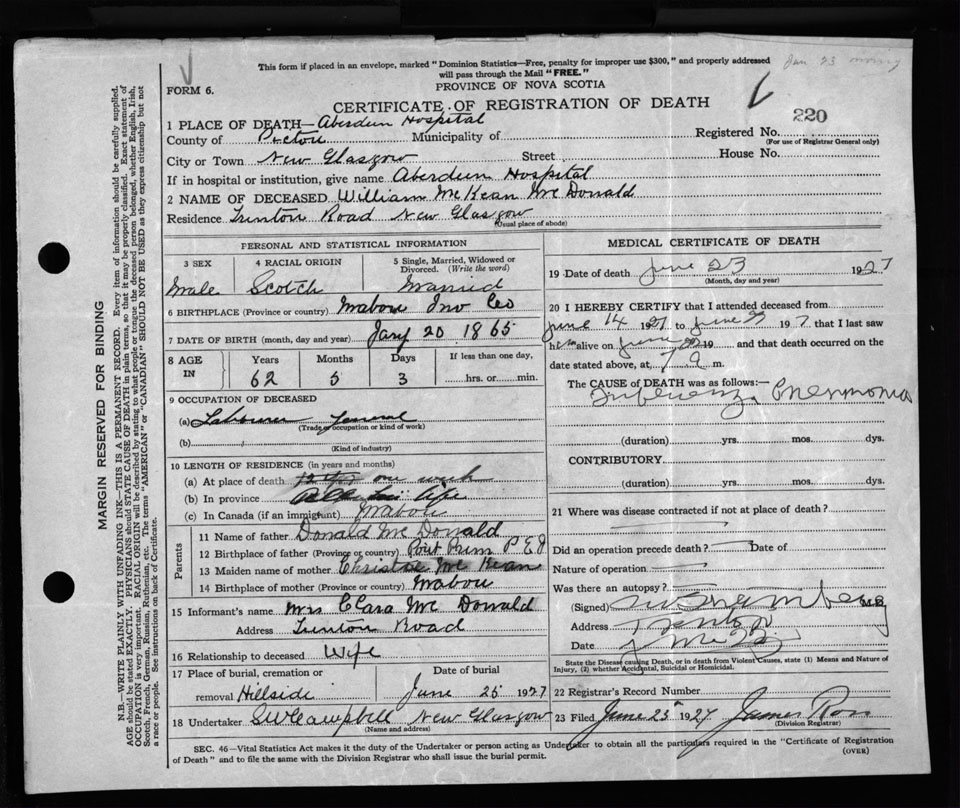 This form if placed in an envelope, marked "Dominion Statistics—Free, penalty for improper use $300," and properly addressed
will pass through the Mail "FREE."
Jan 23
FORM 6.
PROVINCE OF NOVA SCOTIA
CERTIFICATE OF REGISTRATION OF DEATH
220
1 PLACE OF DEATH—Aberdeen Hospital
County of Pictou Municipality of Registered No.
(For use of Registrar General only)
City or Town New Glasgow Street House No.
If in hospital or institution, give name Aberdeen Hospital
2 NAME OF DECEASED William McKean McDonald
Residence Trenton Road New Glasgow
(Usual place of abode)
PERSONAL AND STATISTICAL INFORMATION
3 SEX
Male
4 RACIAL ORIGIN
Scotch
5 Single, Married, Widowed or
Divorced. (Write the word)
Married
6 BIRTHPLACE (Province or country) Mabou Inv Co
7 DATE OF BIRTH (month, day and year) Jany 20 1865
8 AGE
IN
Years
62
Months
5
Days
3
If less than one day,
hrs. or min.
9 OCCUPATION OF DECEASED
(a) Labourer General
(Trade or occupation or kind of work)
(b)
(Kind of industry)
10 LENGTH OF RESIDENCE (in years and months)
(a) At place of death one week
(b) In province life
(c) In Canada (if an immigrant) Mabou
Parents
11 Name of father Donald McDonald
12 Birthplace of father (Province or country) Point Prim P E I
13 Maiden name of mother Christie McKean
14 Birthplace of mother (Province or country) Mabou
15 Informant's name Mrs Clara McDonald
Address Trenton Road
16 Relationship to deceased Wife
17 Place of burial, cremation or
removal Hillside
Date of burial
June 25 1927
18 Undertaker SW Campbell New Glasgow
(Name and address)
MEDICAL CERTIFICATE OF DEATH
19 Date of death June 23 1927
(Month, day and year)
20 I HEREBY CERTIFY that I attended deceased from
June 14 1927 to June 23 1927 that I last saw
him alive on June 22 19 and that death occurred on the
date stated above, at 7 a m.
The CAUSE of DEATH was as follows:—
Influenza Pneumonia
(duration) yrs. mos. dys.
CONTRIBUTORY
(duration) yrs. mos. dys.
21 Where was disease contracted if not at place of death?
Did an operation precede death? Date of
Nature of operation
Was there an autopsy?
(Signed) M.D.
Address
Date
State the Disease causing Death, or in death from Violent Causes, state (1) Means and Nature of
Injury, (2) whether Accidental, Suicidal or Homicidal.
22 Registrar's Record Number
23 Filed June 25 1927 James Ross
(Division Registrar)
SEC. 46—Vital Statistics Act makes it the duty of the Undertaker or person acting as Undertaker to obtain all the particulars required in the "Certificate of Registration
of Death" and to file the same with the Division Registrar who shall issue the burial permit. (OVER)
MARGIN RESERVED FOR BINDING
N.B.—WRITE PLAINLY WITH UNFADING INK—THIS IS A PERMANENT RECORD. Every item of information should be carefully supplied.
AGE should be stated EXACTLY. PHYSICIANS should STATE CAUSE OF DEATH in plain terms, so that it may be properly classified. Exact statement of
OCCUPATION is very important. RACIAL ORIGIN will be described by stating to what people or tongue the deceased person belonged, whether English, Irish,
Scotch, French, German, Russian, Ruthenian, etc. The terms "AMERICAN" or "CANADIAN" SHOULD NOT BE USED as they express citizenship but not
a race or people. See instructions on back of Certificate.